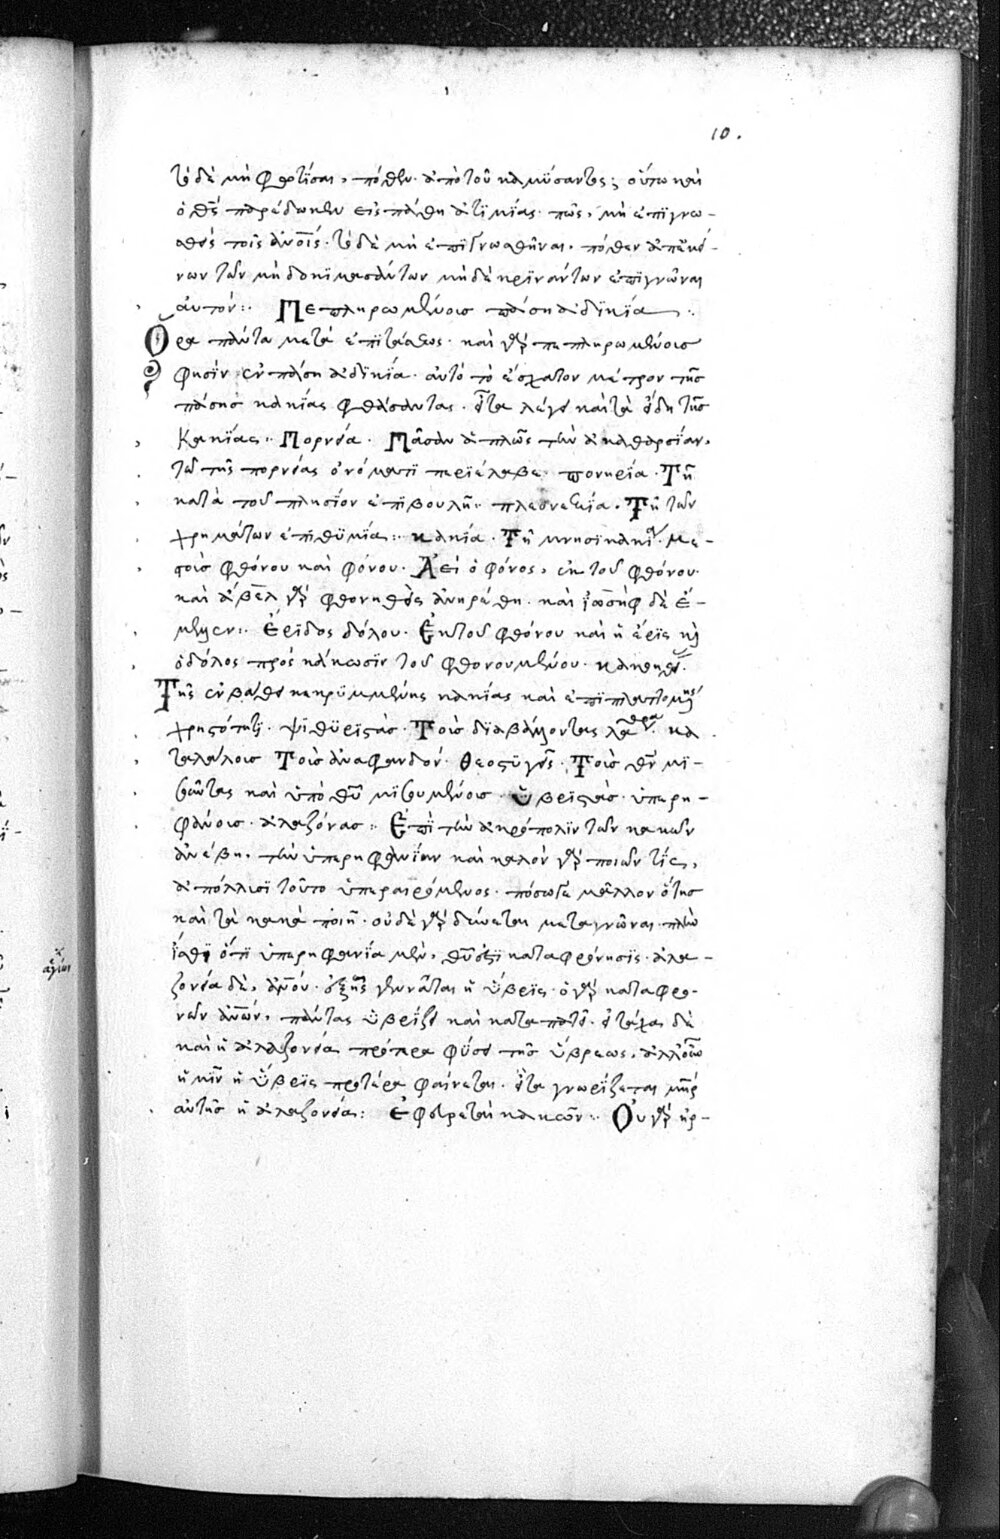 10.
τὸ δὲ μὴ φωτίσαι, πόθεν· ἀπὸ τοῦ καμύσαντος; οὕτω καὶ
ὁ θς παρέδωκεν εἰς πάθη ἀτιμίας· πῶς, μὴ ἐπιγνω-
σθεὶς τοῖς ἀνοις· τὸ δὲ μὴ ἐπιγνωσθῆναι, πόθεν ἀπ' ἐκεί-
νων τῶν μὴ δοκιμασάντων μηδὲ κρινάντων ἐπιγνῶναι
αὐτόν: Πεπληρωμένους πάση ἀδικία
Ὅρα πάντα μετὰ ἐπιτάσεως· καὶ γὰρ πεπληρωμένους
φησὶν ἐν πάση ἀδικία· αὐτὸ τὸ ἔσχατον μέτρον τῆς
πάσης κακίας φθάσαντας· εἶτα λέγει καὶ τὰ εἴδη τῆς
Κακίας: Πορνεία· Πᾶσαν ἁπλῶς τὴν ἀκαθαρσίαν,
τῶ τῆς πορνείας ὀνόματι περιέλαβε· πονηρία· Τῆ
κατὰ τοῦ πλησίον ἐπιβουλῆ: πλεονεξία· Τῆ τῶν
χρημάτων ἐπιθυμία: κακία· Τῆ μνησικακία· Με-
στοὺς φθόνου καὶ φόνου· Ἀεὶ ὁ φόνος, ἐκ τοῦ φθόνου·
καὶ ἄβελ γὰρ φθονηθεὶς ἀνηρέθη· καὶ ἰωσὴφ δὲ ἔ-
μελλεν: Ἔριδος δόλου· Ἐκ τοῦ φθόνου καὶ ἡ ἔρις καὶ
ὁ δόλος πρὸς κάκωσιν τοῦ φθονουμένου· κακοηθείας·
Τῆς ἐν βάθει κεκρυμμένης κακίας καὶ ἐπιπλαττομένης
χρηστότητι· ψιθυριστάς· Τοὺς διαβάλλοντας λάθρα· κα
ταλάλους Τοὺς ἀναφανδόν· Θεοστυγεῖς· Τοὺς θν μι-
σοῦντας καὶ ὑπὸ θυ μισουμένους· ὑβριστάς· ὑπερη-
φάνους· ἀλαζόνας: Ἐπὶ τὴν ἀκρόπολιν τῶν κακῶν
ἀνέβη, τὴν ὑπερηφανίαν καὶ καλὸν γὰρ ποιῶν τίς,
ἀπόλλυσι τοῦτο ὑπεραιρόμενος· πόσω γε μᾶλλον ὅτις
καὶ τὰ κακὰ ποιῆ· οὐδὲ γὰρ δύναται μεταγνῶναι· πλὴν
ἴσθι ὅτι ὑπερηφανία μὲν, θυ ἐστι καταφρόνησις· ἀλα-
ζονεία δὲ, ἀνου· ἐξ ἧς γεννᾶται ἡ ὕβρις· ὁ γὰρ καταφρο-
νῶν ἀνων, πάντας ὑβρίζει καὶ καταπατεῖ· ἐτάχα δὲ
καὶ ἡ ἀλαζονεία πρότερα φύσει τῆς ὕβρεως, ἀλλ' ὅμως
ἡμῖν ἡ ὕβρις προτέρα φαίνεται· εἶτα γνωρίζεται μηρ
αὐτῆς ἡ ἀλαζονεία: Ἐφευρετὰς κακῶν: Οὐ γὰρ ἠρ-